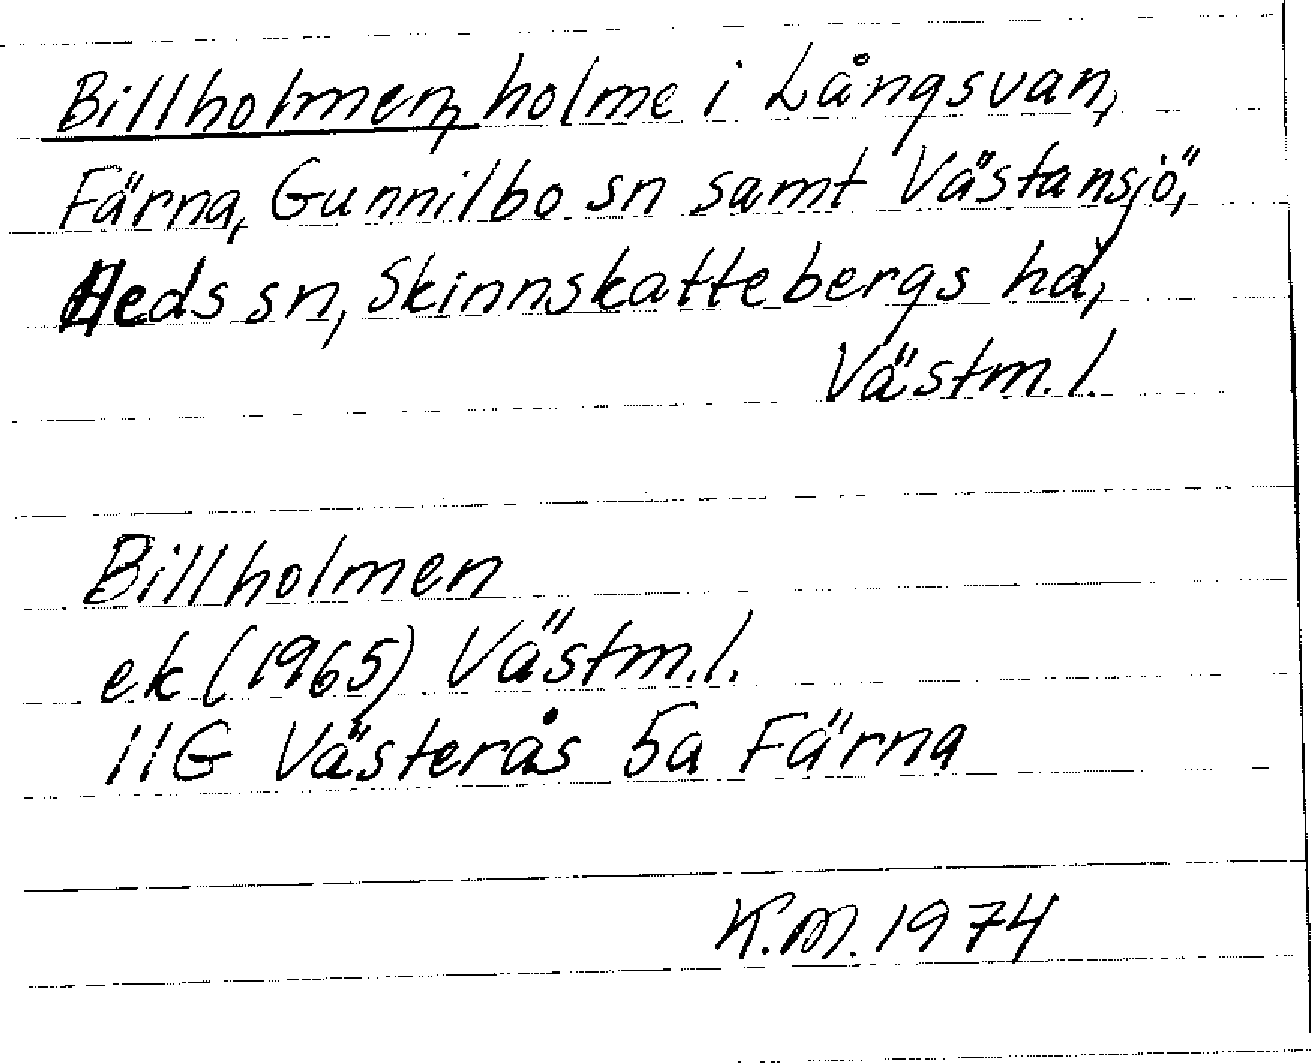 Billholmen, holme i Långsvan,
Färna, Gunnilbo sn samt Västansjö,
Heds sn, Skinnskattebergs hd,
Västm.l.
Billholmen
ek (1965) Västm.l.
11G Västerås 5a Färna
K.M. 1974